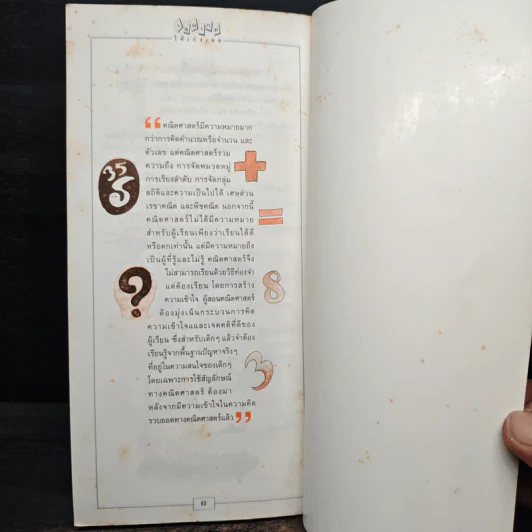 ให้เก่งเลข
“ คณิตศาสตร์มีความหมายมาก
กว่าการคิดคำนวณหรือจำนวน และ
ตัวเลข แต่คณิตศาสตร์รวม
ความถึง การจัดหมวดหมู่
การเรียงลำดับ การจัดกลุ่ม
สถิติและความเป็นไปได้ เศษส่วน
เรขาคณิต และพีชคณิต นอกจากนี้
คณิตศาสตร์ไม่ได้มีความหมาย
สำหรับผู้เรียนเพียงว่าเรียนได้ดี
หรือตกเท่านั้น แต่มีความหมายถึง
เป็นผู้ที่รู้และไม่รู้ คณิตศาสตร์จึง
ไม่สามารถเรียนด้วยวิธีท่องจำ
แต่ต้องเรียน โดยการสร้าง
ความเข้าใจ ผู้สอนคณิตศาสตร์
ต้องมุ่งเน้นกระบวนการคิด
ความเข้าใจและเจตคติที่ดีของ
ผู้เรียน ซึ่งสำหรับเด็กๆ แล้วจำต้อง
เรียนรู้จากพื้นฐานปัญหาจริงๆ
ที่อยู่ในความสนใจของเด็กๆ
โดยเฉพาะการใช้สัญลักษณ์
ทางคณิตศาสตร์ ต้องมา
หลังจากมีความเข้าใจในความคิด
รวบยอดทางคณิตศาสตร์แล้ว ”
35
+
=
?
8
3
63